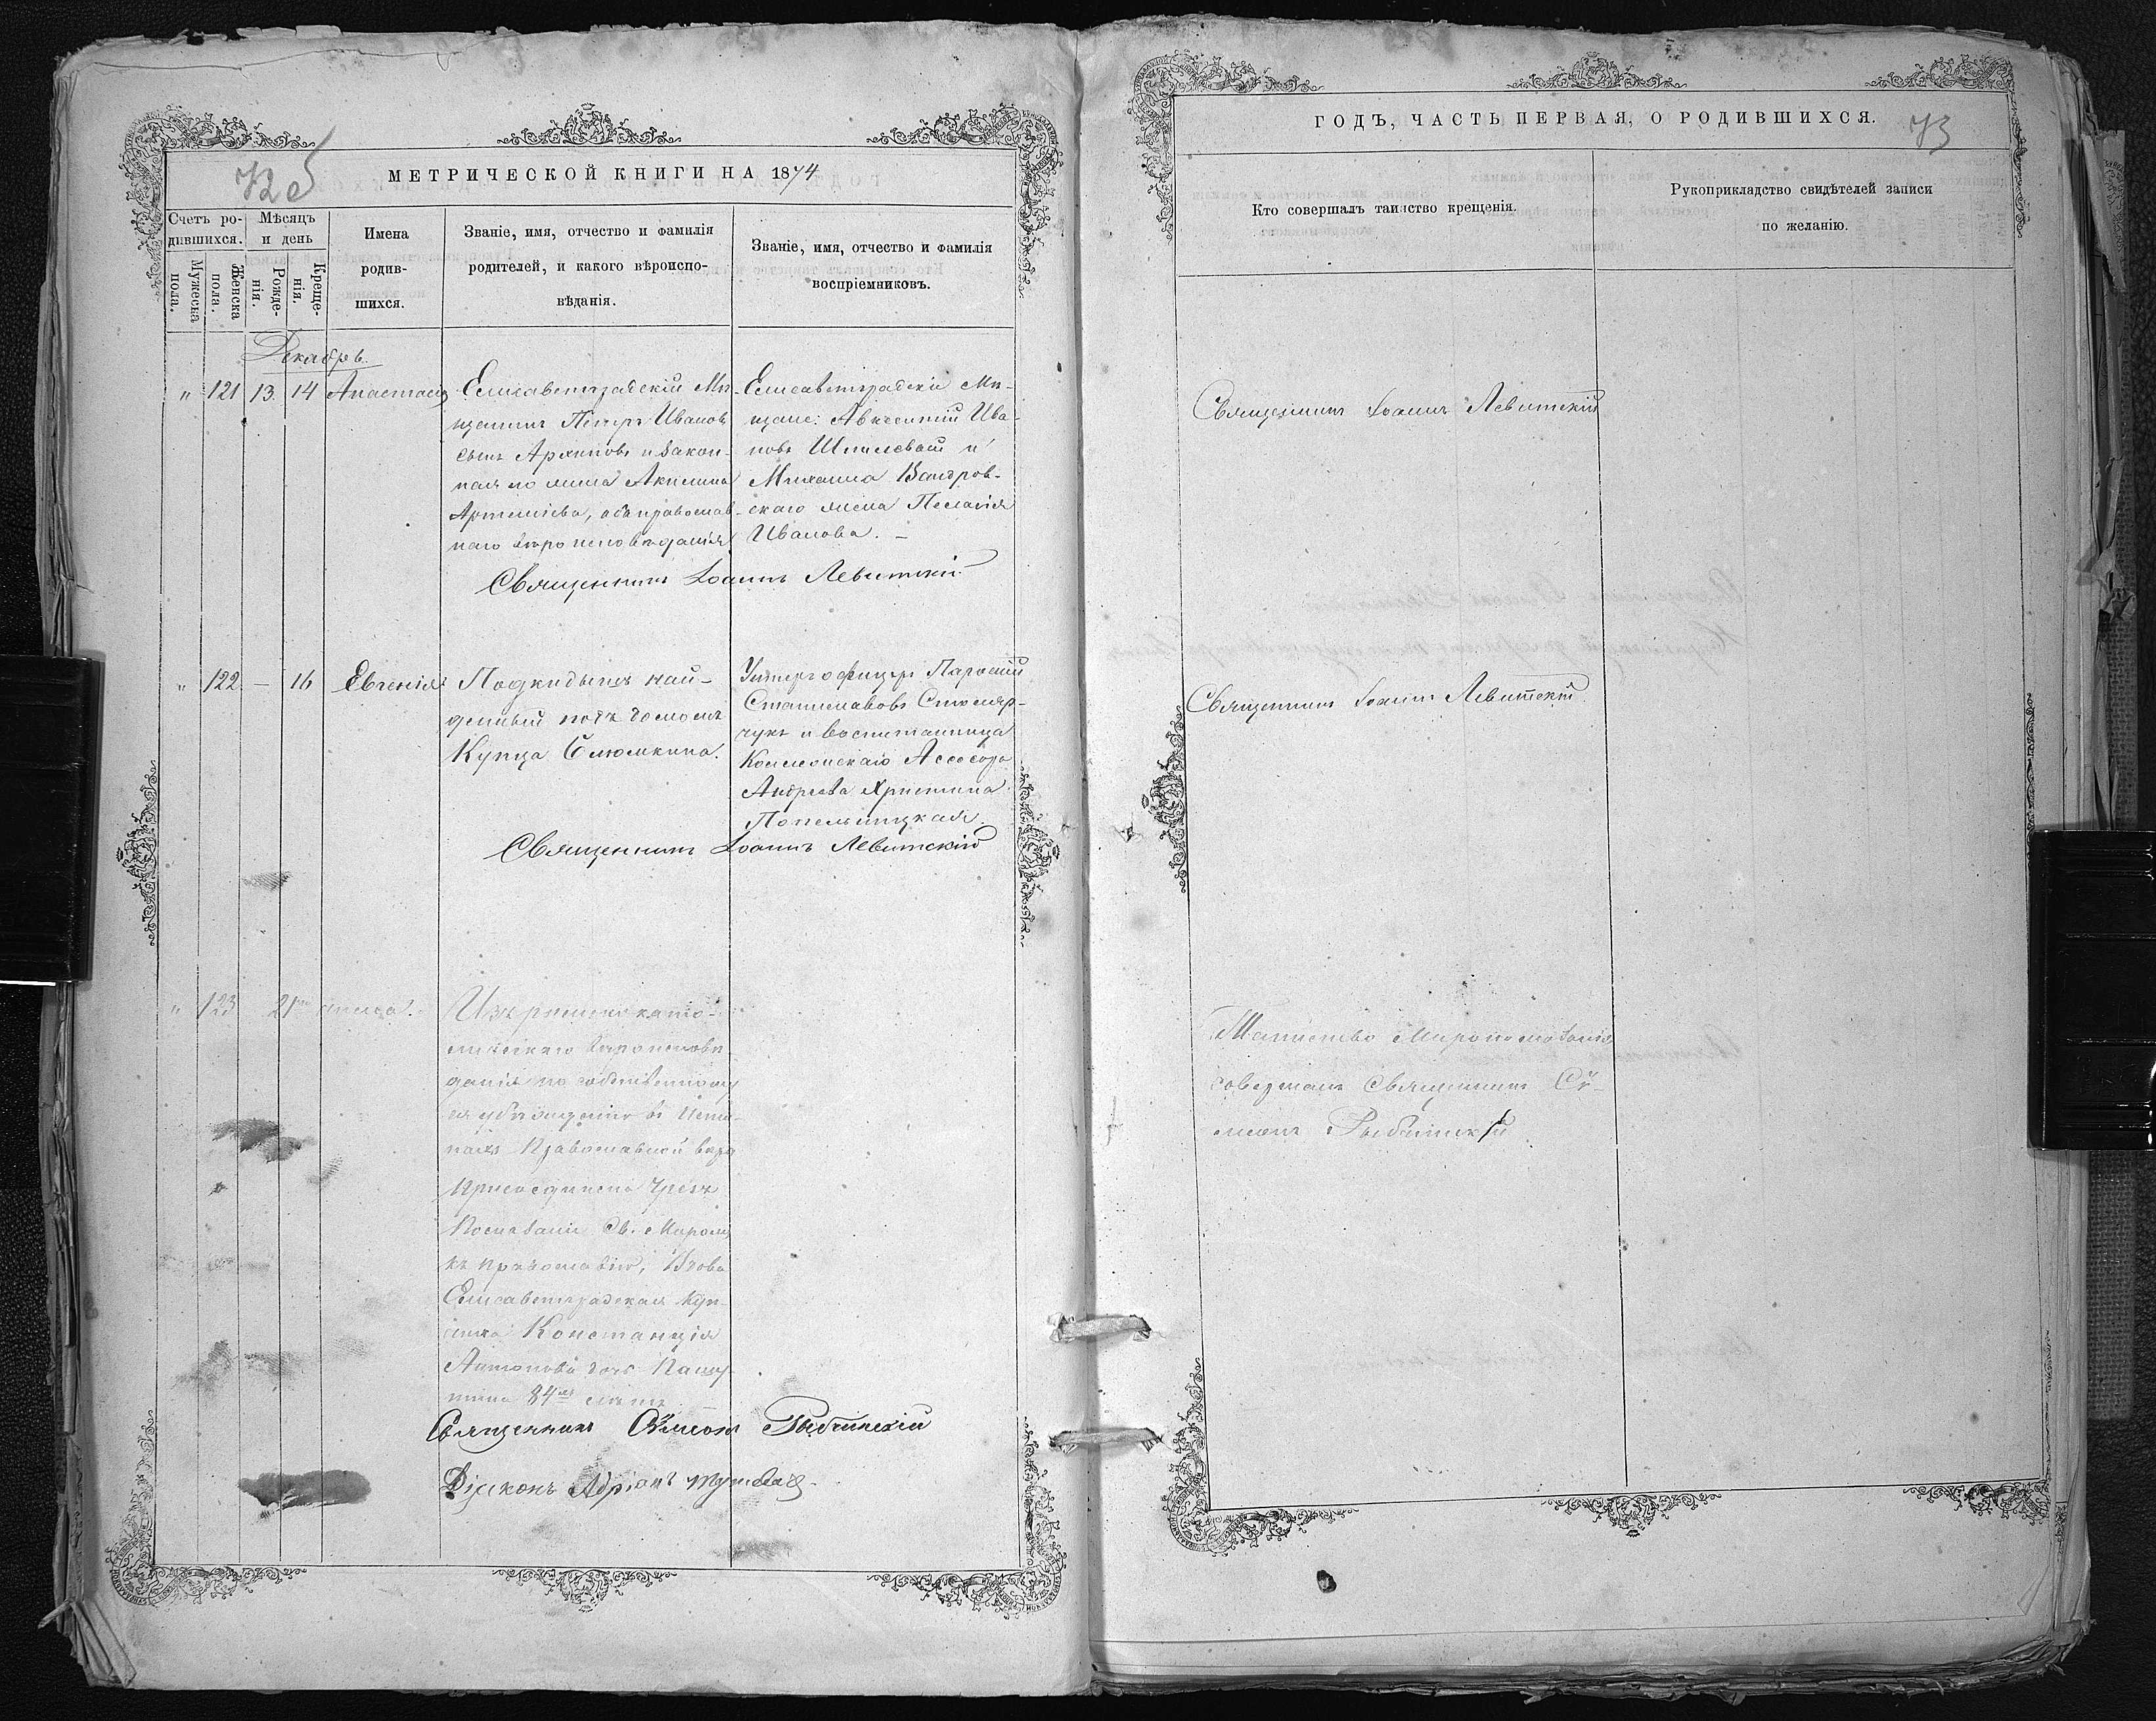 72 об
МЕТРИЧЕСКОЙ КНИГИ НА 1874
Счетъ ро-
дившихся.
Мужеска
пола.
Женска
пола.
Мѣсяцъ
и день
Рожде-
нія.
Креще-
нія.
Имена
родив-
шихся.
Званіе, имя, отчество и фамилія
родителей, и какого вѣроиспо-
вѣданія.
Званіе, имя, отчество и фамилія
воспріемниковъ.
Декабрь.
" 121 13. 14 Анастасія
Елисаветградскій Мѣ-
щанинъ Петръ Ивановъ
сынъ Архиповъ и закон-
ная его жена Акилина
Артеміева, оба православ-
наго вѣроисповѣданія.
Елисаветградскіе Мѣ-
щане: Авксентій Ива-
новъ Шпилевой и
Михаила
скаго жена Пелагія
Иванова. –
Священникъ Іоаннъ Левитскій
" 122 – 16 Евгенія
Подкидышъ най-
денный подъ домомъ
Купца
Унтеръ офицеръ
Станиславовъ Столяр-
чукъ и воспитанница
Коллежскаго Ассесора
Андреева Христина
Попельницкая.
Священникъ Іоаннъ Левитскій
" 123 21го числа.
Изъ римско като-
лическаго вѣроисповѣ-
данія по собственному
ея убѣжденію въ Исти-
нахъ Православной вѣры
присоединена чрезъ
Помазаніе Св. Миромъ
къ православію, Вдова
Елисаветградская Куп-
чиха Констанція
Антонова дочь
84хъ лѣтъ
Священникъ Сѵмеонъ Рыбчинскій
Діаконъ Адріанъ
ГОДЪ, ЧАСТЬ ПЕРВАЯ, О РОДИВШИХСЯ.
73
Кто совершалъ таинство крещенія.
Рукоприкладство свидѣтелей записи
по желанію.
Священникъ Іоаннъ Левитскій
Священникъ Іоаннъ Левитскій
Таинство Миропомазанія
совершалъ Священникъ Сѵ-
меонъ Рыбчинскій